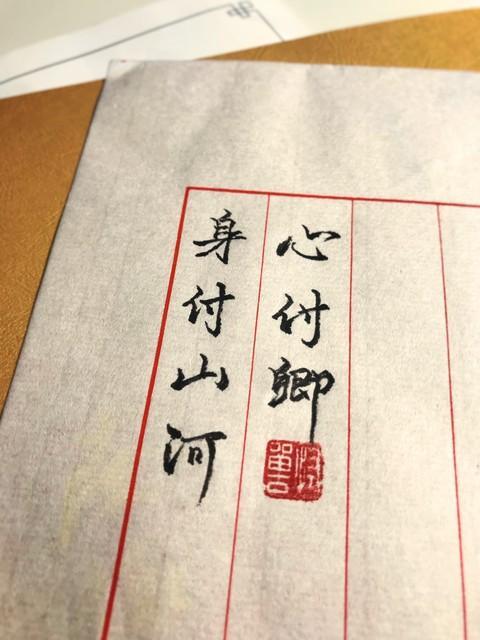 身付山河
心付卿